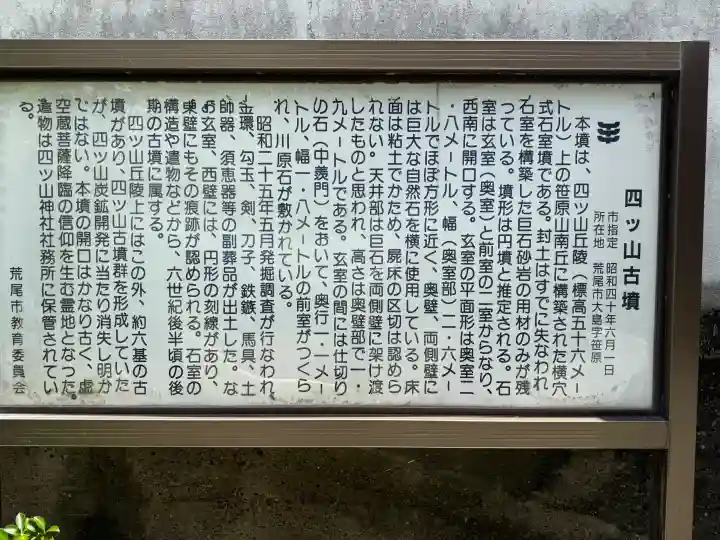 四ッ山古墳
市指定　昭和四十年六月一日
所在地　荒尾市大島字笹原
本墳は、四ツ山丘陵（標高五十六メー
トル）上の笹原山南丘に構築された横穴
式石室墳である。封土はすでに失なわれ
石室を構築した巨石砂岩の用材のみが残
っている。墳形は円墳と推定される。石
室は玄室（奥室）と前室の二室からなり、
西南に開口する。玄室の平面形は奥室二
・八メートル、幅（奥室部）二・六メー
トルでほぼ方形に近く、奥壁、両側壁に
は巨大な自然石を横に使用している。床
面は粘土でかため、屍床の区切は認めら
れない。天井部は巨石を両側壁に架け渡
したものと思われ、高さは奥壁部で一・
九メートルである。玄室の間には仕切り
の石（中羨門）をおいて、奥行一・一メー
トル、幅一・八メートルの前室がつくら
れ、川原石が敷かれている。
昭和二十五年五月発掘調査が行なわれ、
金環、勾玉、剣、刀子、鉄鏃、馬具、土
師器、須恵器等の副葬品が出土した。な
お玄室、西壁には、円形の刻線があり、
東壁にもその痕跡が認められる。石室の
構造や遺物などから、六世紀後半頃の後
期の古墳に属する。
四ツ山丘陵上にはこの外、約六基の古
墳があり、四ツ山古墳群を形成していた
が、四ツ山炭鉱開発に当たり消失し明か
ではない。本墳の開口はかなり古く、虚
空蔵菩薩降臨の信仰を生む霊地となった。
遺物は四ツ山神社社務所に保管されてい
る。
荒尾市教育委員会